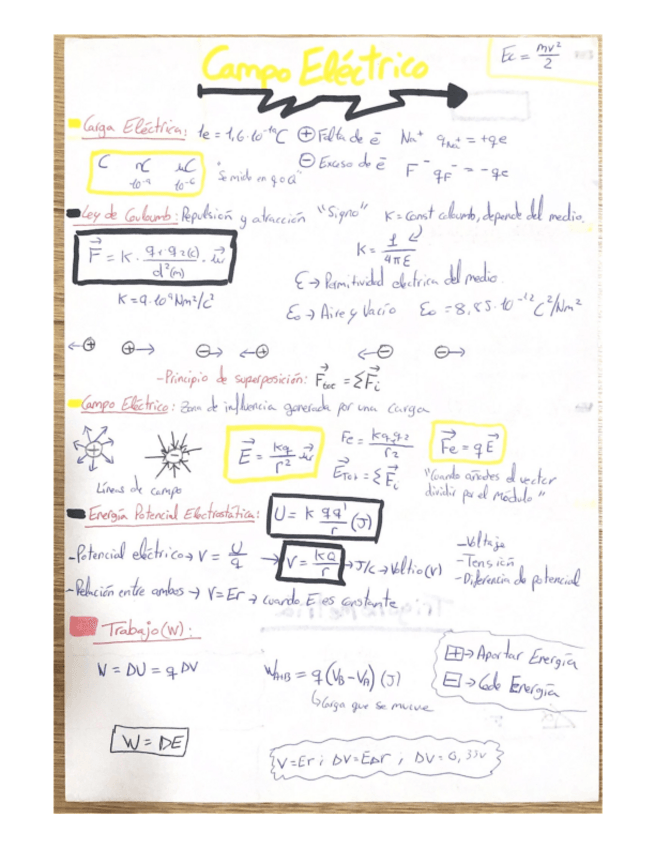 Campo Eléctrico
Ec = mv²/2
Carga Eléctrica: 1e = 1,6·10⁻¹⁹C ⊕ Falta de ē Na⁺ qNa⁺ = +qe
⊖ Exceso de ē F⁻ qF⁻ = -qe
C nC μC
10⁻⁹ 10⁻⁶
"Se mide en q o Q"
Ley de Couloumb: Repulsión y atracción "Signo" K = const columb, depende del medio.
F⃗ = K · q₁·q₂(c)/d²(m) · u⃗
K = 1/4πε
K = 9·10⁹Nm²/c²
ε → Permitividad electrica del medio
ε₀ → Aire y Vacío ε₀ = 8,85·10⁻¹² C²/Nm²
←⊕ ⊕→ ⊖→ ←⊕ ←⊖ ⊖→
-Principio de superposición: F⃗tot = ΣF⃗i
Campo Eléctrico: Zona de influencia generada por una carga
E⃗ = kq/r² u⃗
Fe = kq₁q₂/r²
E⃗Tot = ΣE⃗i
F⃗e = qE⃗
Líneas de campo
"Cuando añades el vector
dividir por el módulo"
Energía Potencial Electrostática: U = K qq'/r (J)
-Potencial eléctrico → V = U/q → V = KQ/r → J/c → Voltio(V)
-Voltaje
-Tensión
-Diferencia de potencial
-Relación entre ambos → V=Er → cuando E es constante
Trabajo(W):
W = DU = q DV
WA→B = q(VB-VA) (J)
↳ Carga que se mueve
+ → Aportar Energía
- → Cede Energía
W = DE
V=Er; DV=EDr; DV=